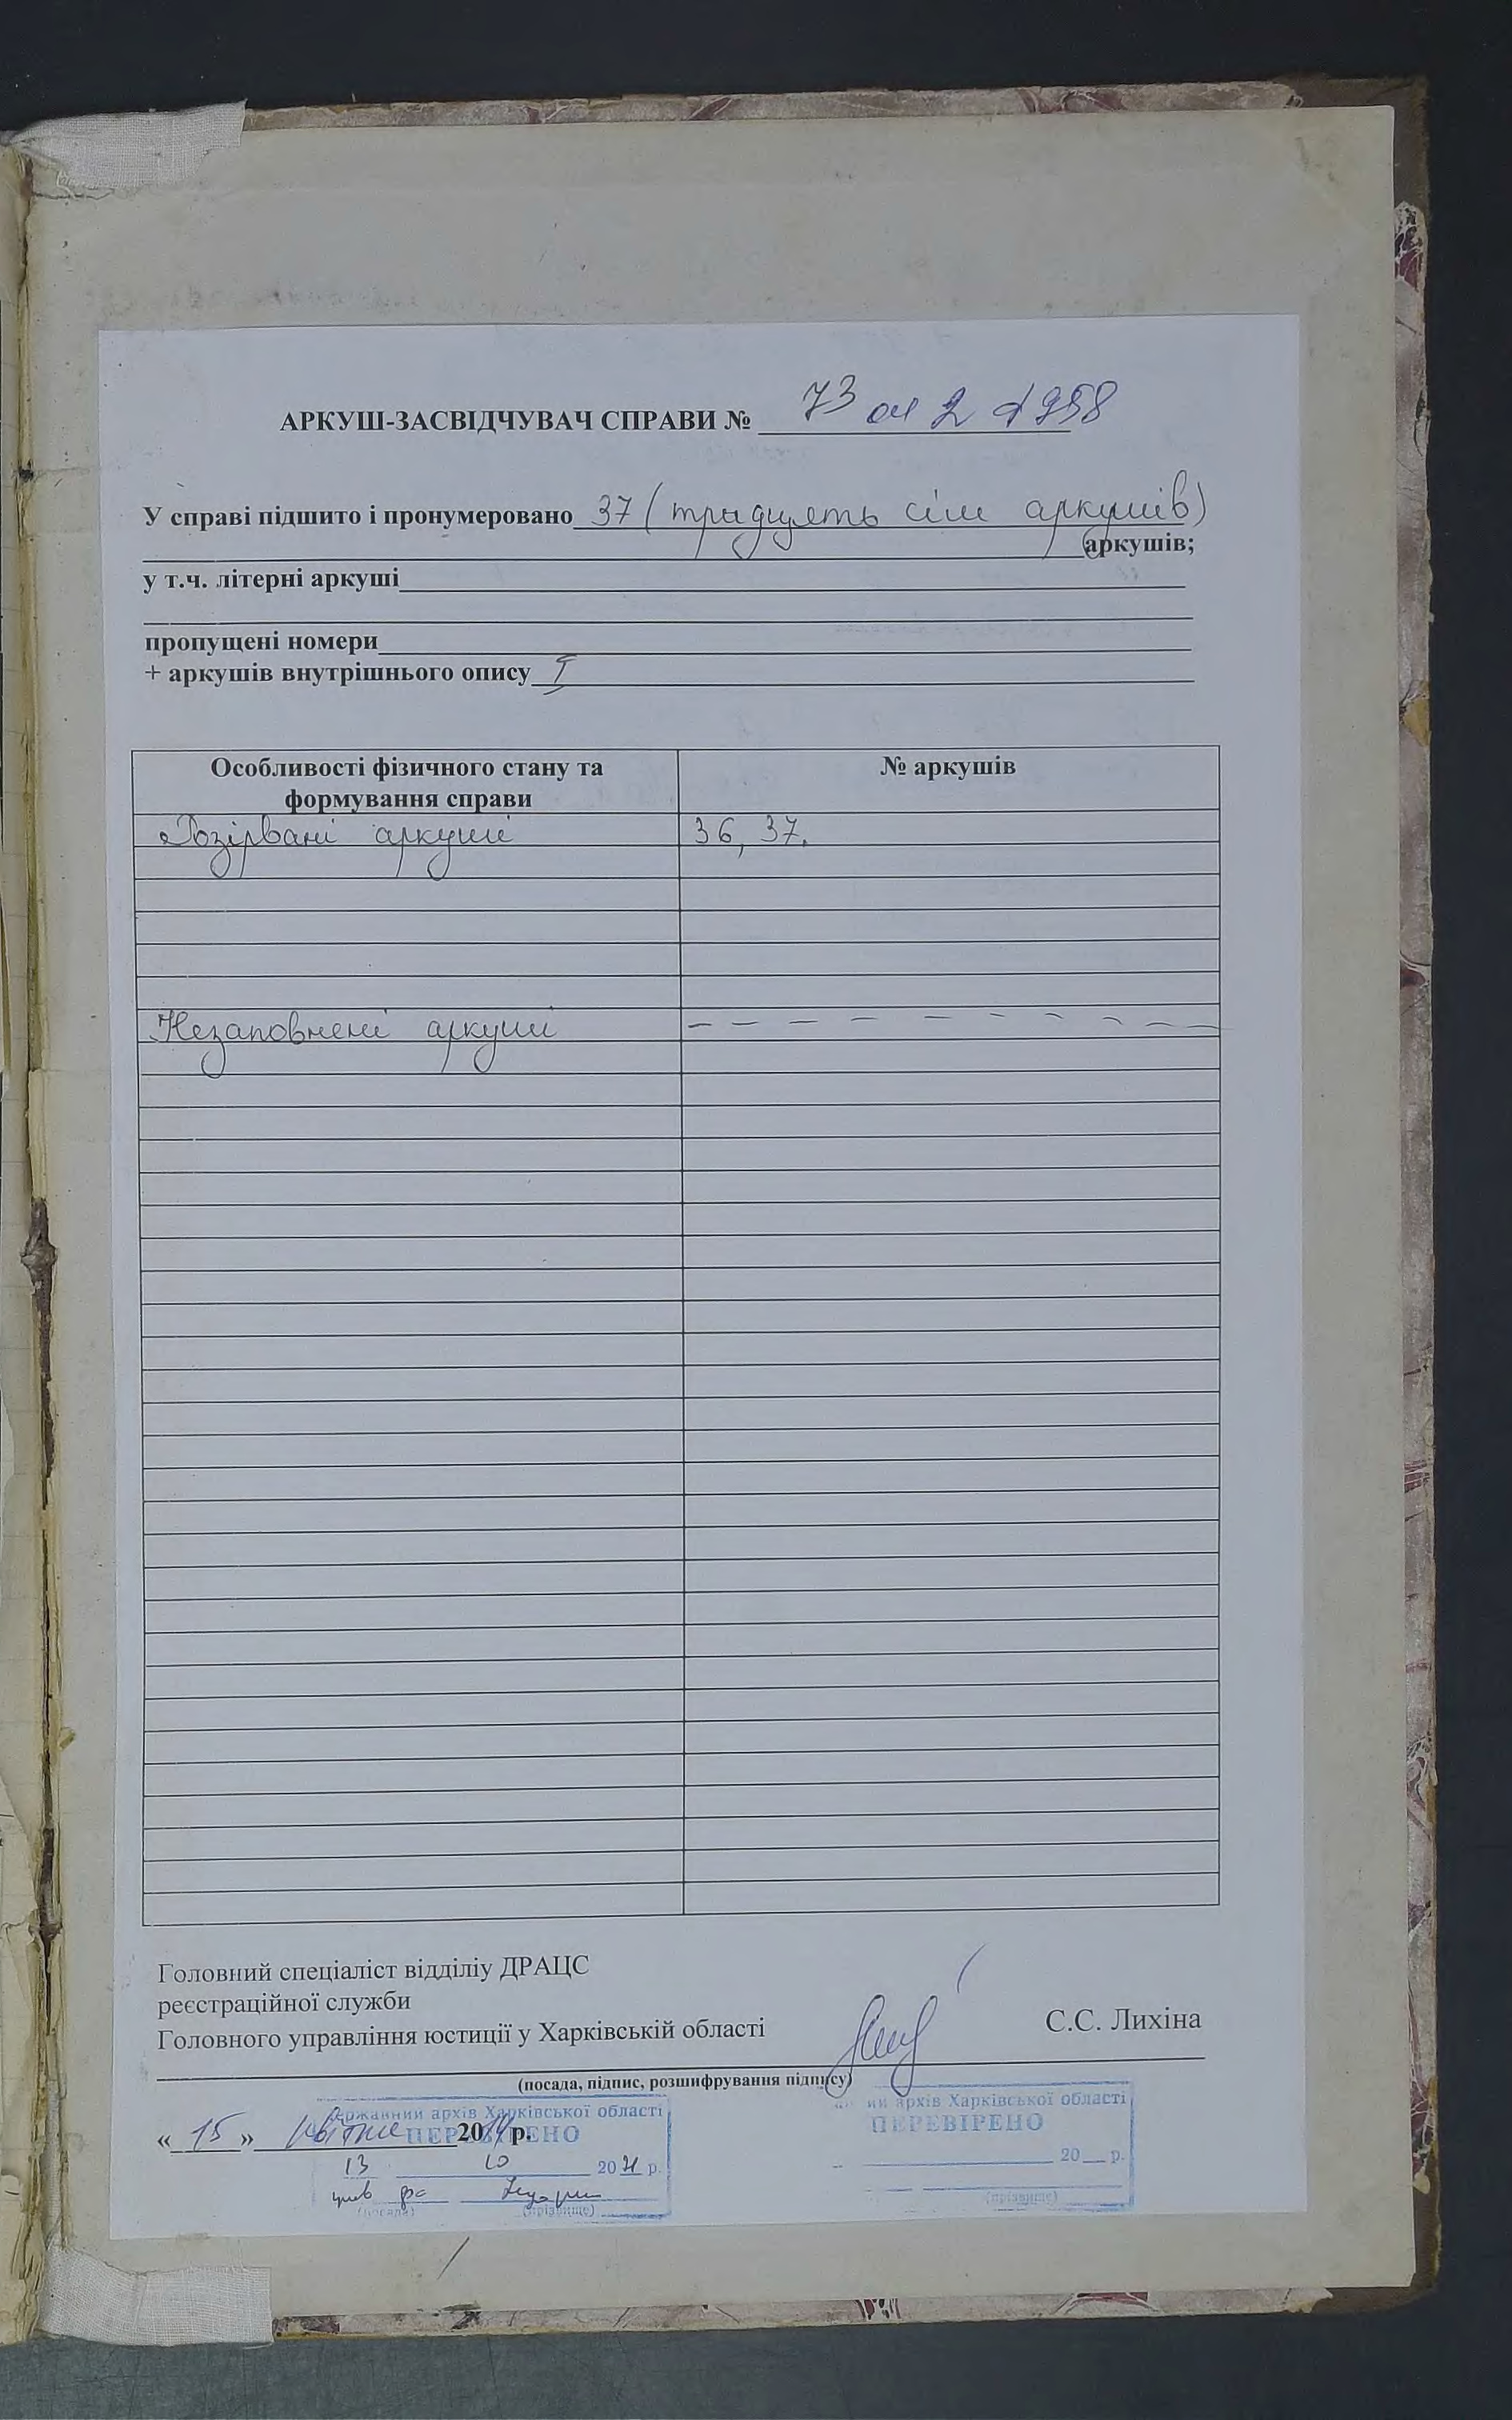 АРКУШ-ЗАСВІДЧУВАЧ СПРАВИ № 73 оп 2 ф 958
У справі підшито і пронумеровано 37 (тридцять сім аркушів)
аркушів;
у т.ч. літерні аркуші
пропущені номери
+ аркушів внутрішнього опису I
Особливості фізичного стану та
формування справи
№ аркушів
Розірвані аркуші 36, 37.
Незаповнені аркуші – – – – – – – – –
Головний спеціаліст відділіу ДРАЦС
реєстраційної служби
Головного управління юстиції у Харківській області С.С. Лихіна
(посада, підпис, розшифрування підпису)
Державний архів Харківської області
ПЕРЕВІРЕНО
« 15 » квітня 2014 р.
13 10 2021 р.
(посада) (прізвище)
ий архів Харківської області
ПЕРЕВІРЕНО
20 р.
(прізвище)